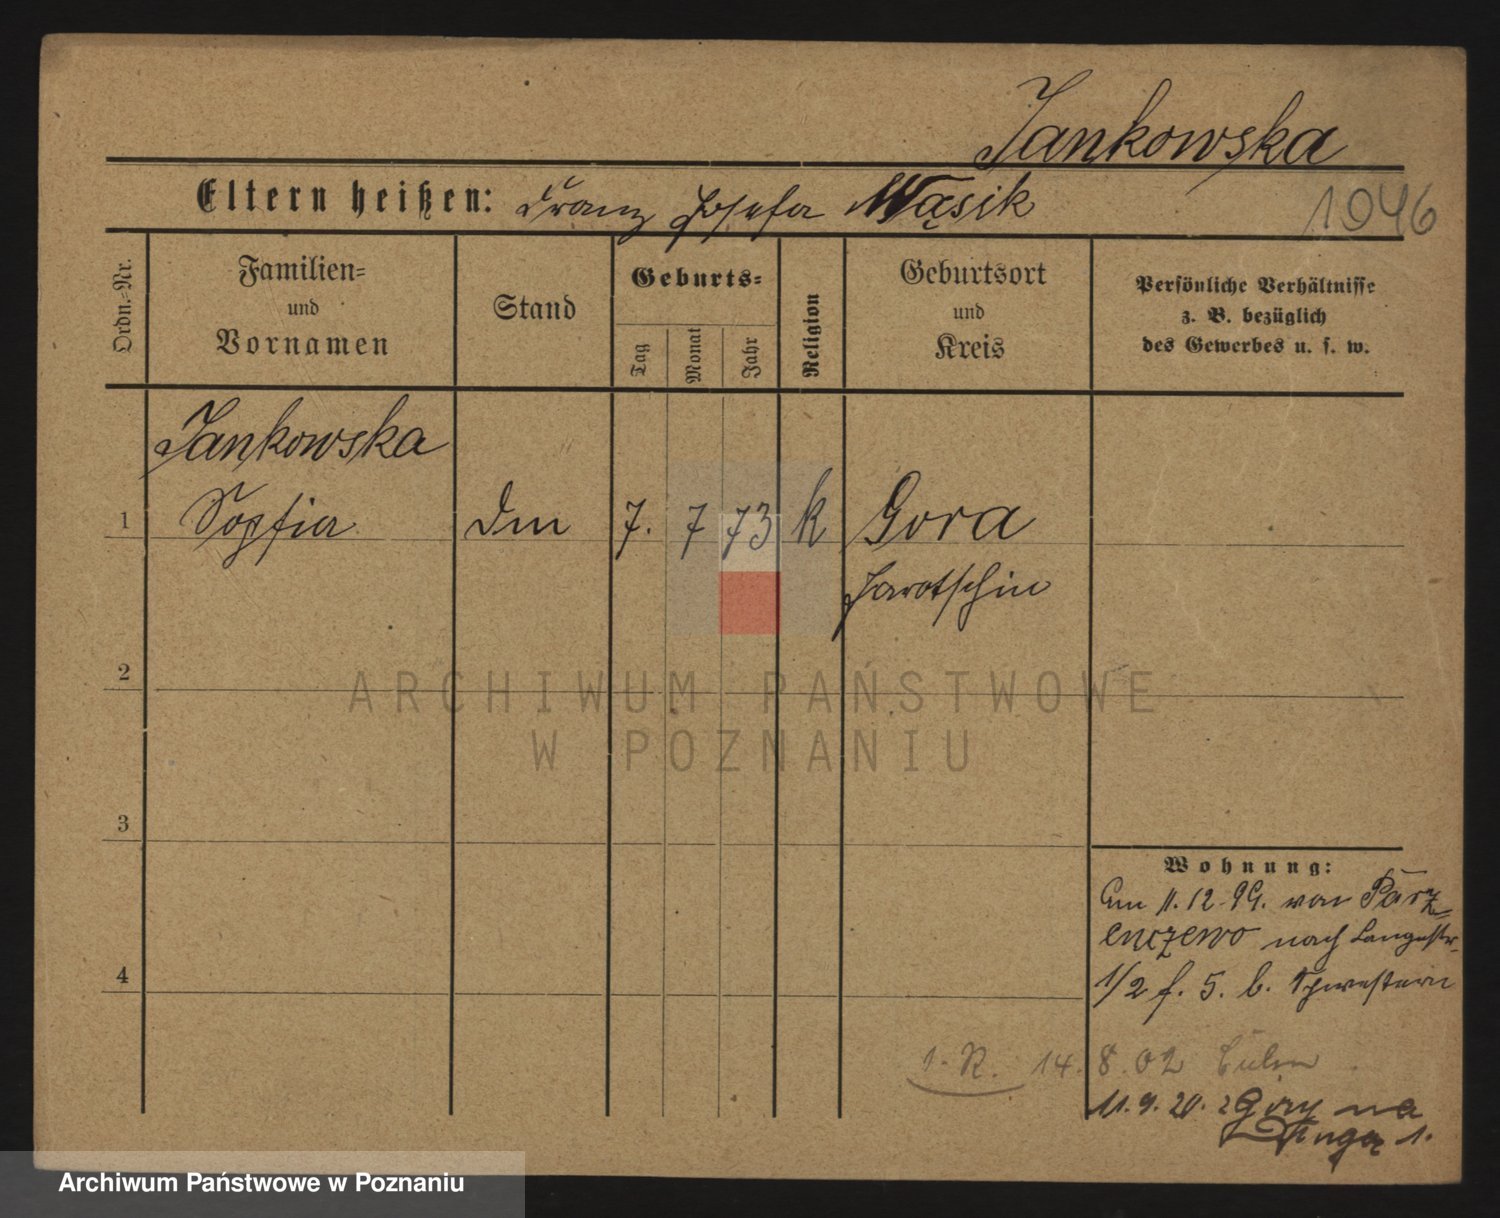 Jankowska
Eltern heißen: Franz Josefa Wąsik
1046
Ordn.-Nr.
Familien=
und
Vornamen
Stand
Geburts=
Tag
Monat
Jahr
Religion
Geburtsort
und
Kreis
Persönliche Verhältnisse
z. B. bezüglich
des Gewerbes u. s. w.
Jankowska
1 Sophia 7. 7 73 k Gora
Jarotschin
2
ARCHIWUM PAŃSTWOWE
W POZNANIU
3
4
Wohnung:
Am 11.12.99. von Parz=
enczewo nach Langestr.
1/2 f. 5. b. Schwestern
1. R. 14. 8. 02
11.9.20. z Góry na
1.
Archiwum Państwowe w Poznaniu